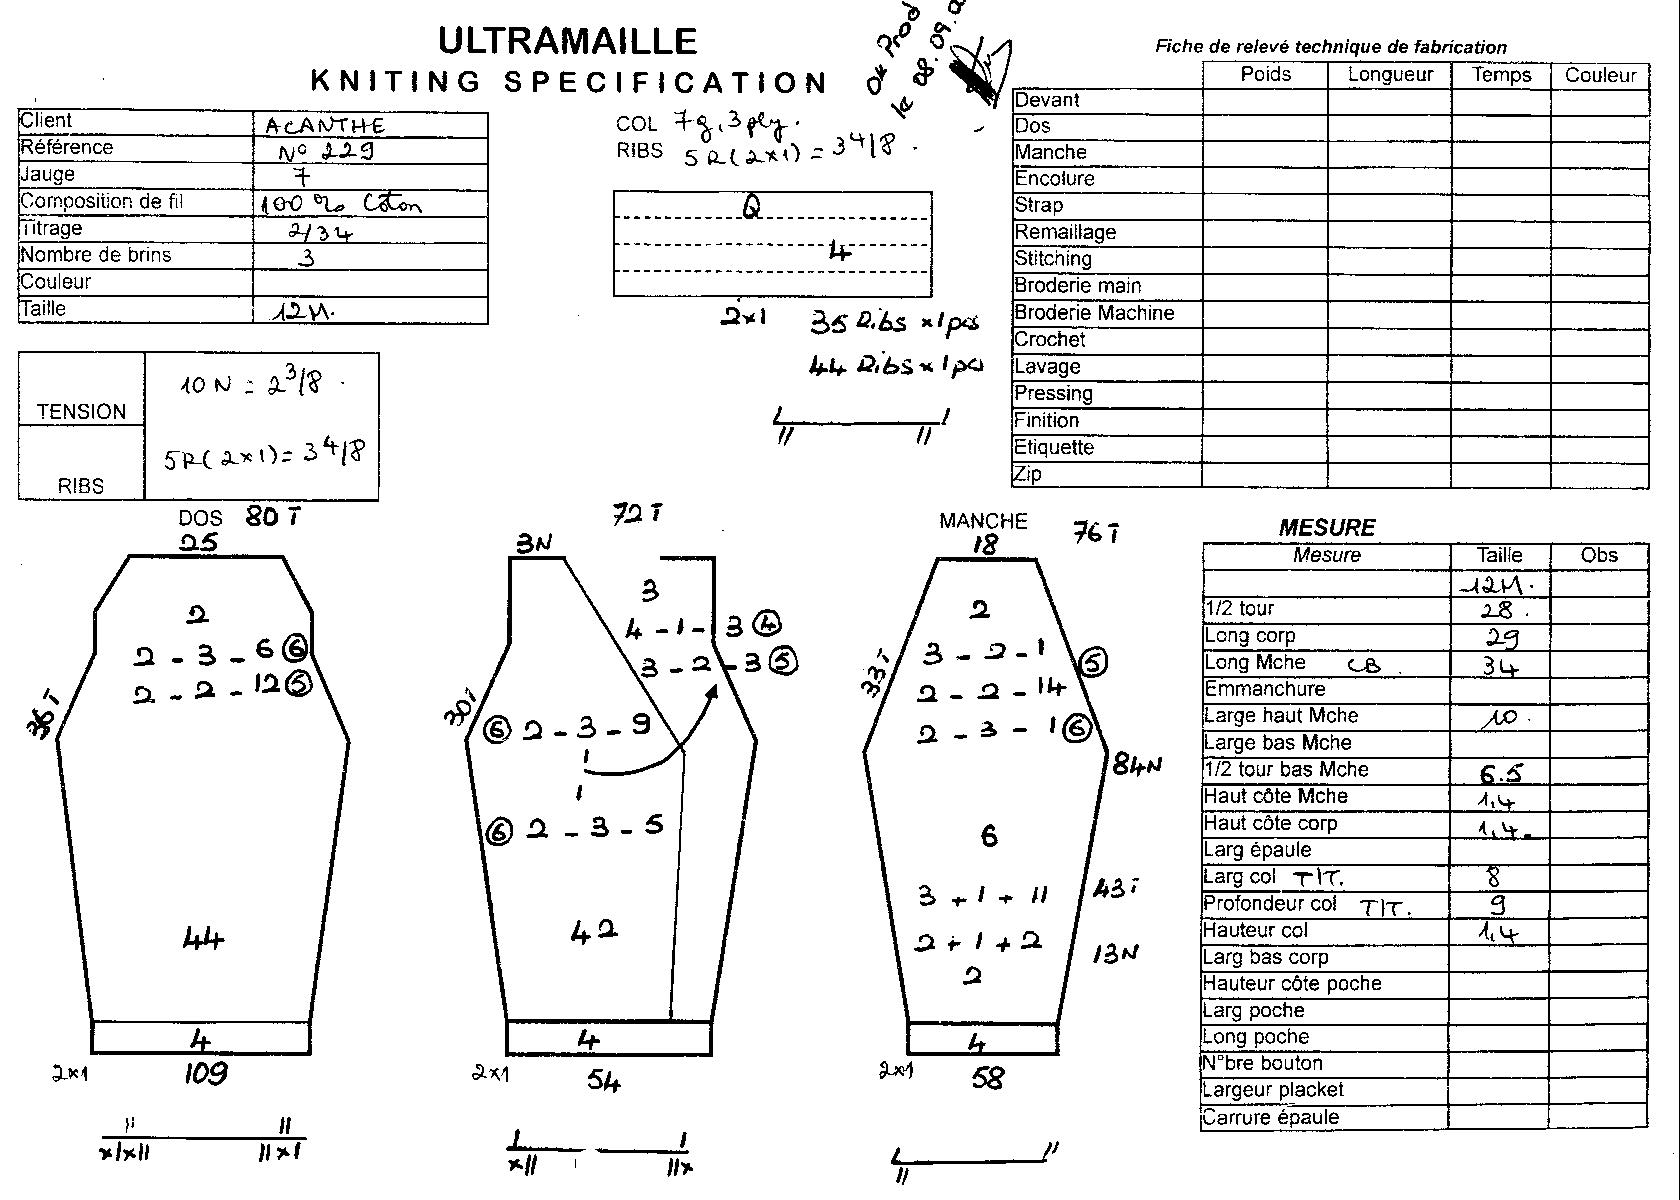 ULTRAMAILLE
KNITING SPECIFICATION
Ok Prod
le 08.09.0
Client ACANTHE
Référence N° 229
Jauge 7
Composition de fil 100 % Côton
Titrage 2/34
Nombre de brins 3
Couleur
Taille 12M.
COL 7g, 3ply.
RIBS 5R(2x1) = 3 4/8.
Q
4
2x1 35 Ribs x 1pcs
44 Ribs x 1pcs
TENSION 10N = 2 3/8.
RIBS 5R(2x1) = 3 4/8
Fiche de relevé technique de fabrication
Poids Longueur Temps Couleur
Devant
Dos
Manche
Encolure
Strap
Remaillage
Stitching
Broderie main
Broderie Machine
Crochet
Lavage
Pressing
Finition
Etiquette
Zip
DOS 80T
25
2
2 - 3 - 6 6
2 - 2 - 12 5
36T
44
4
2x1 109
72T
3N
3
4 - 1 - 3 4
3 - 2 - 3 5
30T
6 2 - 3 - 9
1
1
6 2 - 3 - 5
42
4
2x1 54
MANCHE 76T
18
2
3 - 2 - 1
5
33T
2 - 2 - 14
2 - 3 - 1 6
84N
6
3 + 1 + 11 43T
2 + 1 + 2 13N
2
4
2x1 58
MESURE
Mesure Taille Obs
12M.
1/2 tour 28.
Long corp 29
Long Mche CB 34
Emmanchure
Large haut Mche 10.
Large bas Mche
1/2 tour bas Mche 6.5
Haut côte Mche 1,4
Haut côte corp 1,4.
Larg épaule
Larg col T/T. 8
Profondeur col T/T. 9
Hauteur col 1,4
Larg bas corp
Hauteur côte poche
Larg poche
Long poche
N°bre bouton
Largeur placket
Carrure épaule